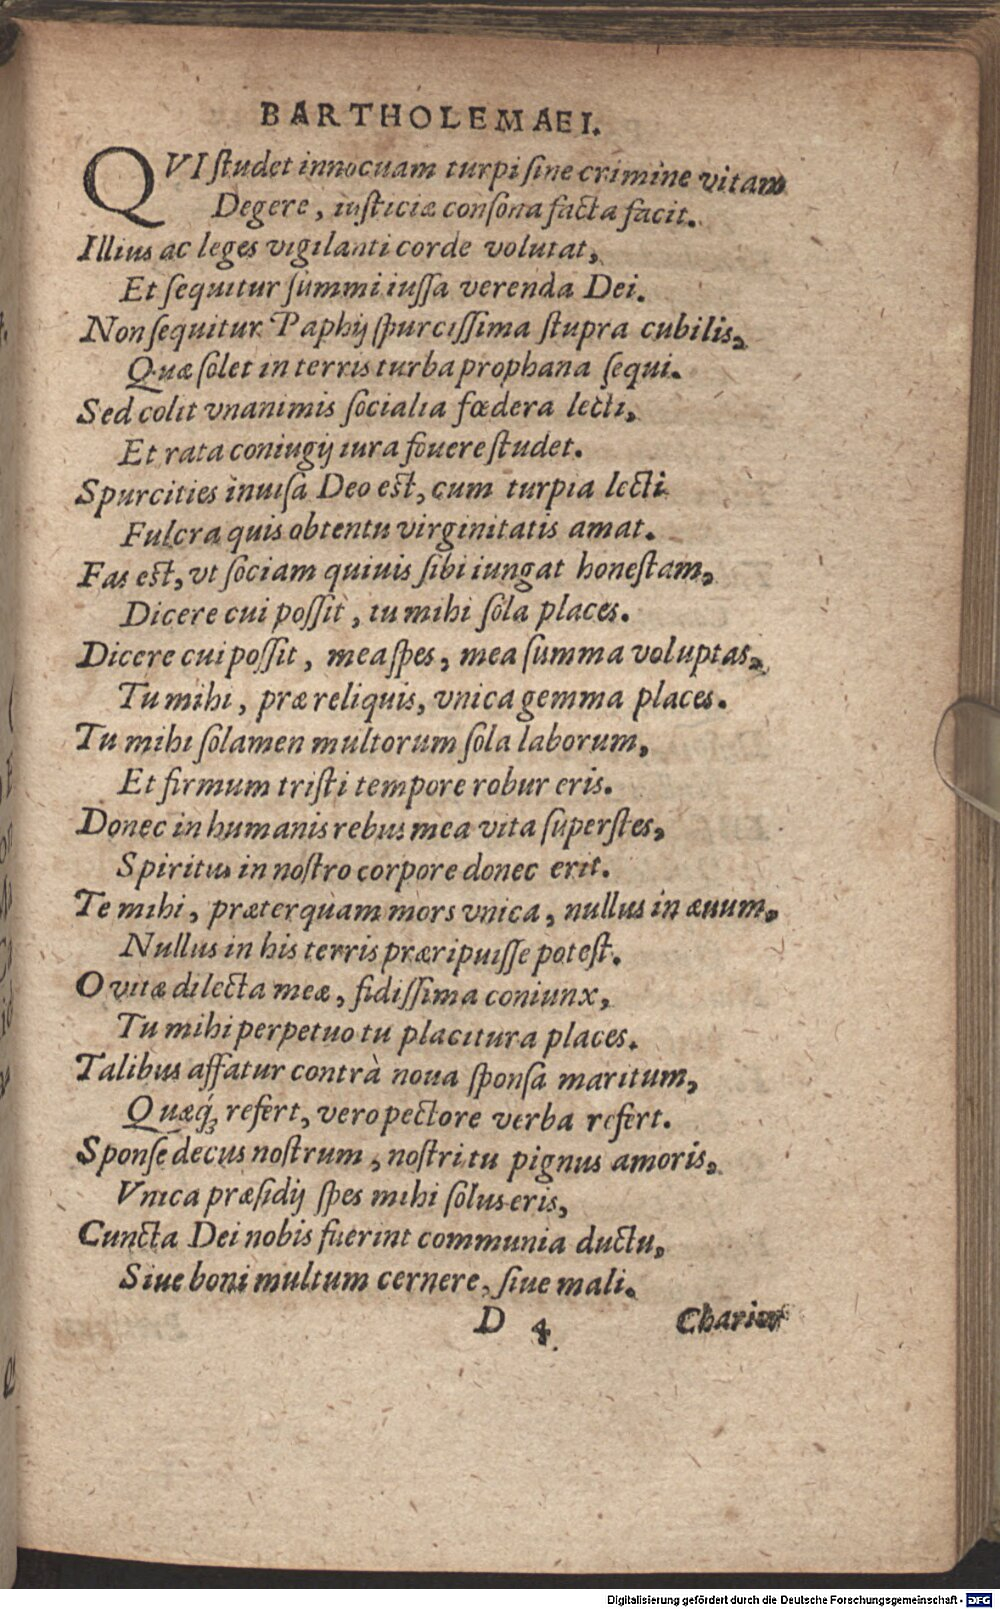 BARTHOLEMAEI.
QVI ſtudet innocuam turpi ſine crimine vitam
Degere, iuſticiæ conſona facta facit.
Illius ac leges vigilanti corde volutat,
Et ſequitur ſummi iuſſa verenda Dei.
Non ſequitur Paphij ſpurciſſima ſtupra cubilis,
Quæ ſolet in terris turba prophana ſequi.
Sed colit vnanimis ſocialia fœdera lecti,
Et rata coniugij iura fouere ſtudet.
Spurcities inuiſa Deo eſt, cum turpia lecti
Fulcra quis obtentu virginitatis amat.
Fas eſt, vt ſociam quiuis ſibi iungat honeſtam,
Dicere cui poſſit, tu mihi ſola places.
Dicere cui poſſit, mea ſpes, mea ſumma voluptas,
Tu mihi, præ reliquis, vnica gemma places.
Tu mihi ſolamen multorum ſola laborum,
Et firmum triſti tempore robur eris.
Donec in humanis rebus mea vita ſuperſtes,
Spiritus in noſtro corpore donec erit.
Te mihi, præterquam mors vnica, nullus in æuum,
Nullus in his terris præripuiſſe poteſt.
O vitæ dilecta meæ, fidiſſima coniunx,
Tu mihi perpetuo tu placitura places.
Talibus affatur contrà noua ſponſa maritum,
Quæq́; refert, vero pectore verba refert.
Sponſe decus noſtrum, noſtri tu pignus amoris,
Vnica præſidij ſpes mihi ſolus eris,
Cuncta Dei nobis fuerint communia ductu,
Siue boni multum cernere, ſiue mali.
D 4. Charior
Digitalisierung gefördert durch die Deutsche Forschungsgemeinschaft - DFG